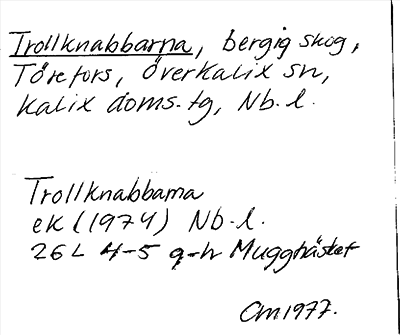 Trollknabbarna, bergig skog,
Törefors, Överkalix sn,
Kalix doms. tg, Nb. l.
Trollknabbarna
ek (1974) Nb. l.
26L 4-5 g-h Mugghästet
CM 1977.